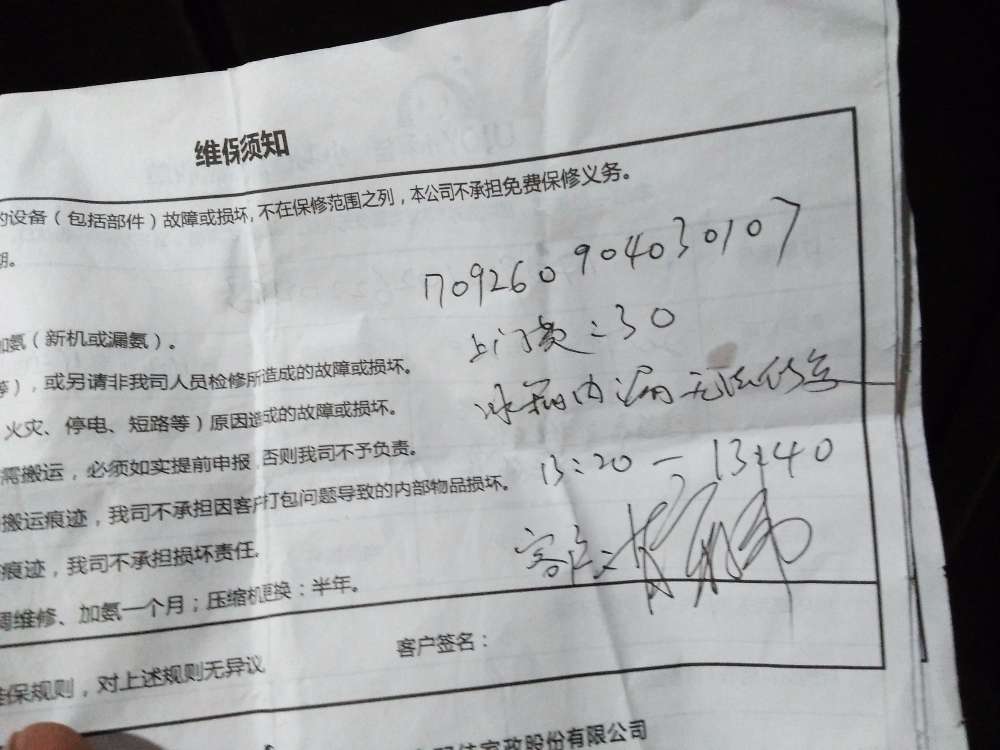 维保须知
的设备（包括部件）故障或损坏,不在保修范围之列，本公司不承担免费保修义务。
期。
709260904030107
加氨（新机或漏氨）。
上门费：30
等），或另请非我司人员检修所造成的故障或损坏。
冰箱内漏无法修
火灾、停电、短路等）原因造成的故障或损坏。
需搬运，必须如实提前申报，否则我司不予负责。
13:20 — 13:40
搬运痕迹，我司不承担因客户打包问题导致的内部物品损坏。
痕迹，我司不承担损坏责任。
客户：
调维修、加氨一个月；压缩机更换：半年。
客户签名：
维保规则，对上述规则无异议
家政股份有限公司